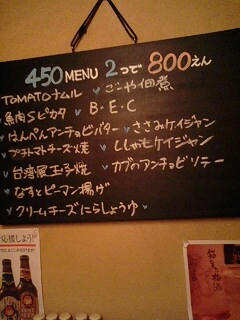 450 MENU 2つで 800えん
TOMATOナムル
ごーや佃煮
魚肉Sピカタ
B・E・C
はんぺんアンチョビバター
ささみケイジャン
プチトマトチーズ焼
ししゃもケイジャン
台湾風玉子焼
カブのアンチョビソテー
なすとピーマン揚げ
クリームチーズにらしょうゆ
応援しよう!
梅酒